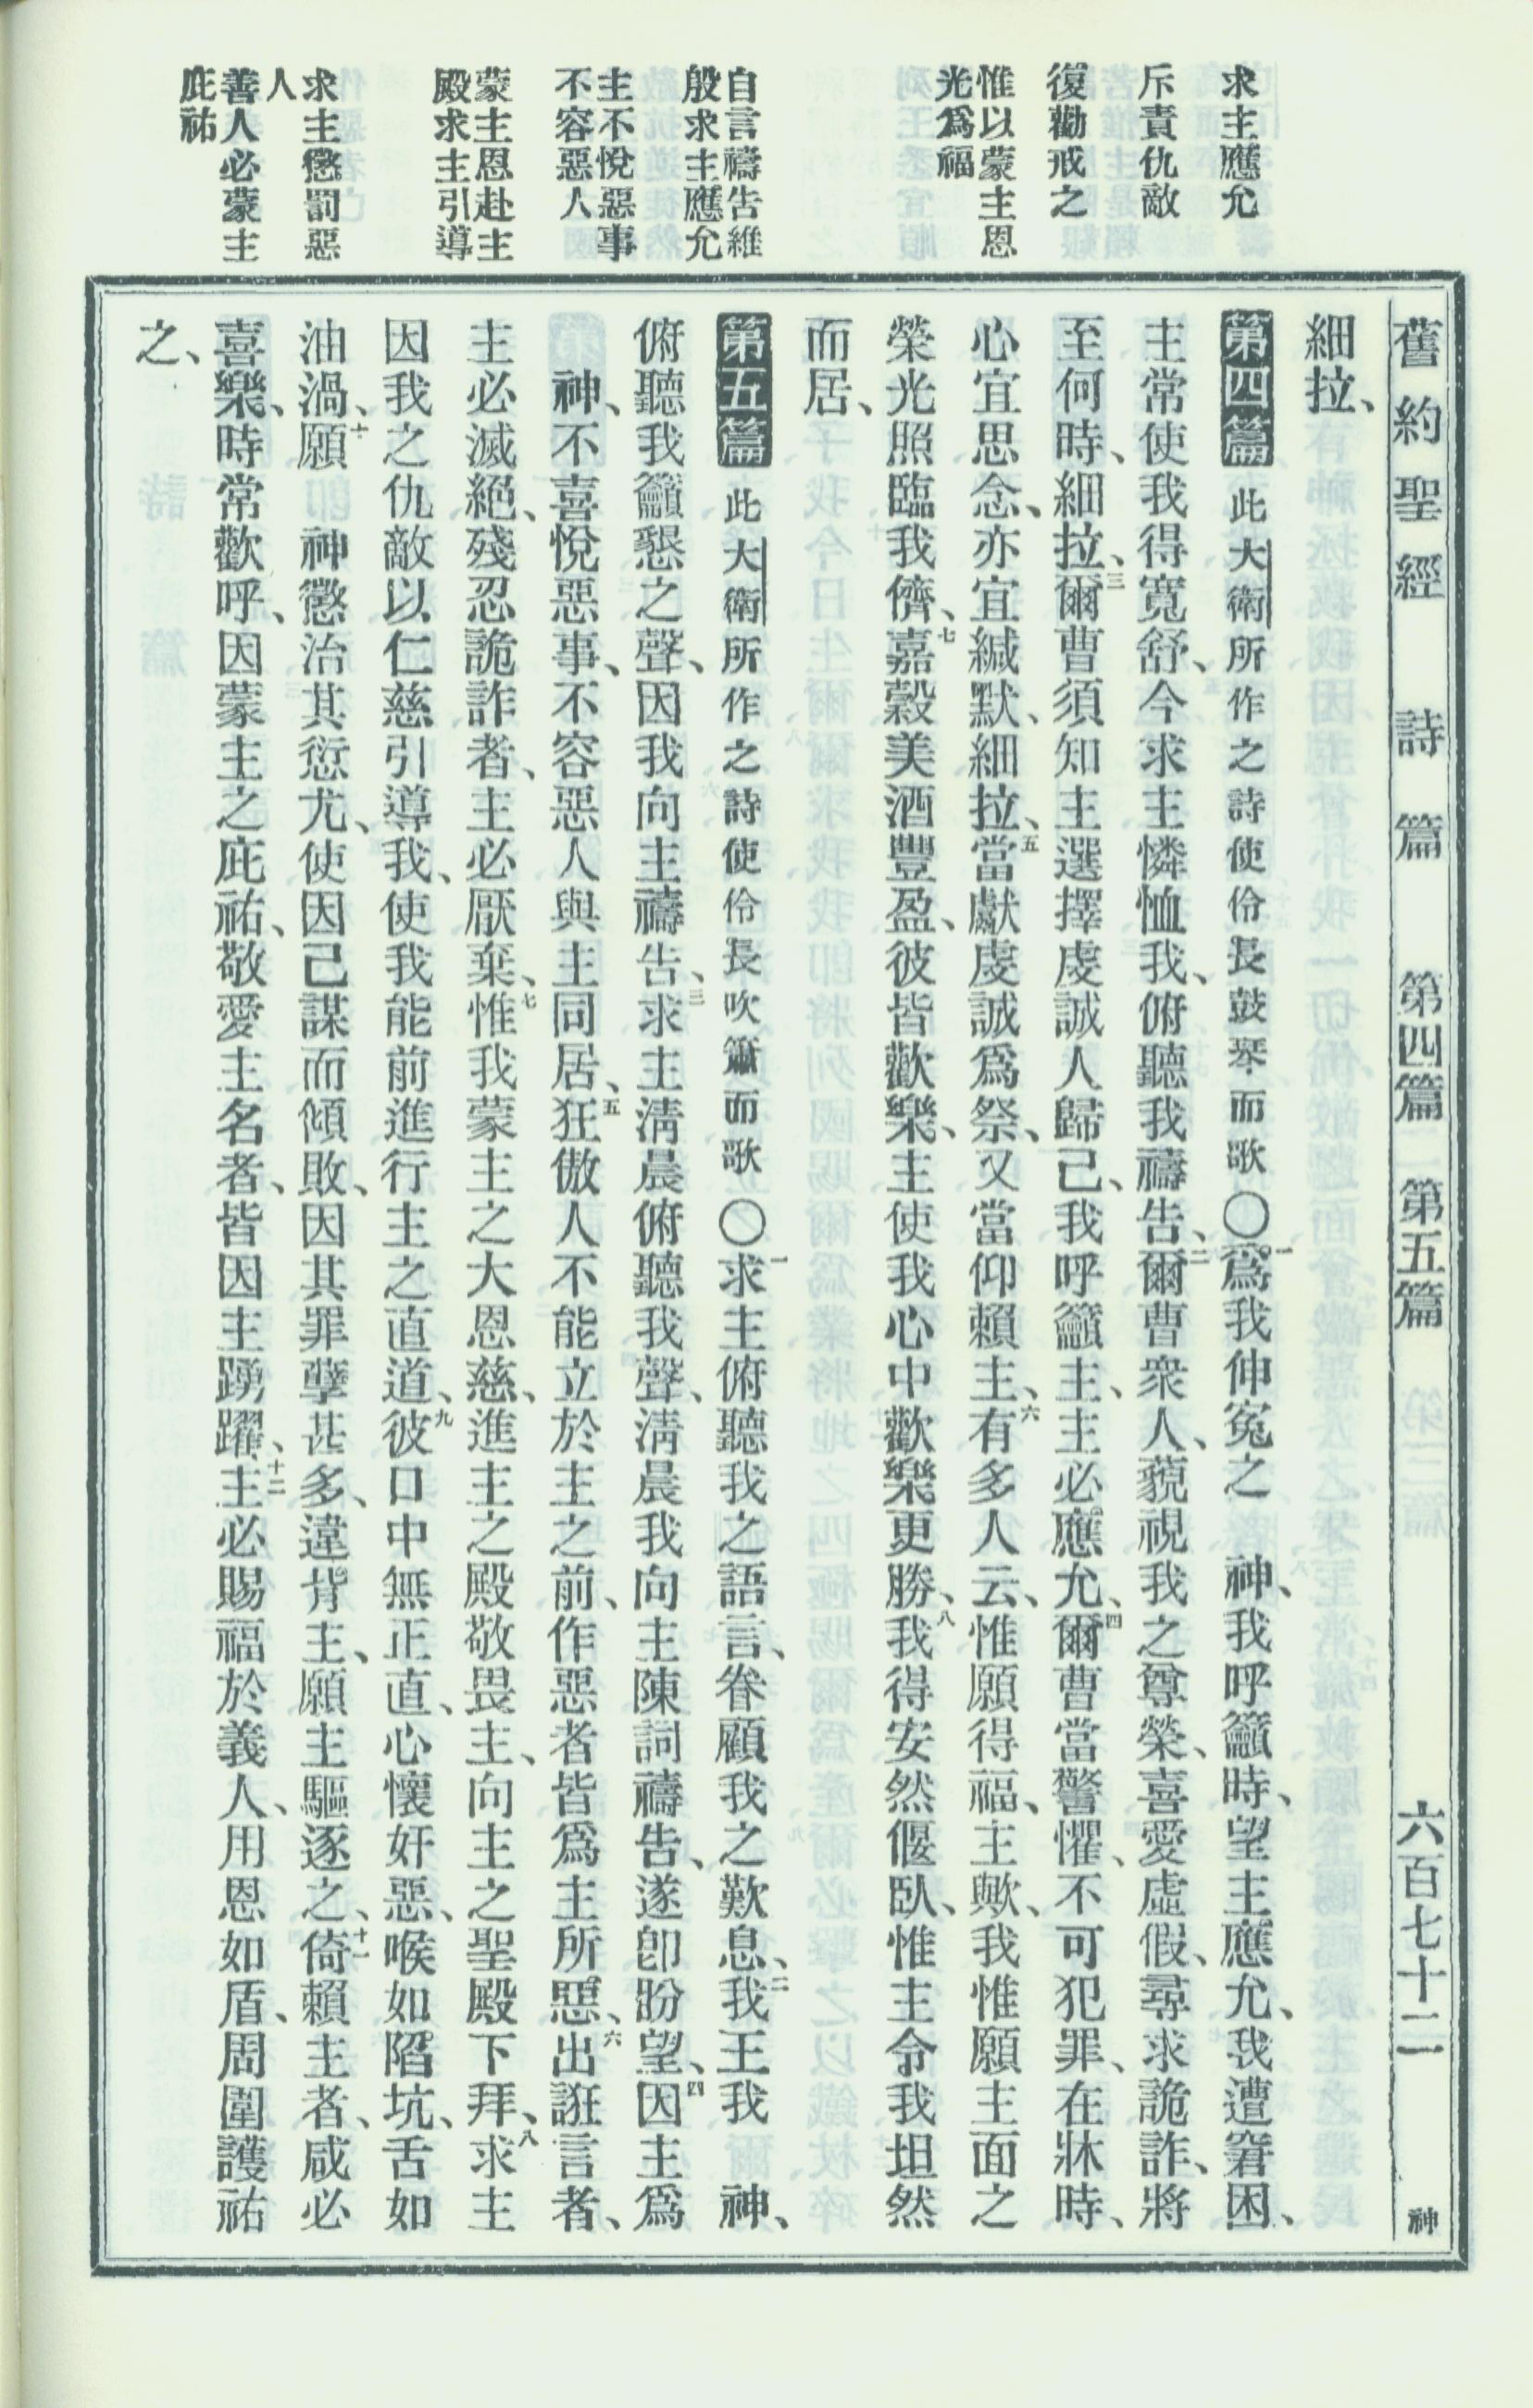 求主應允
斥責仇敵
復勸戒之
惟以蒙主恩
光爲福
自言禱告維
殷求主應允
主不悅惡事
不容惡人
蒙主恩赴主
殿求主引導
求主懲罰惡
人
善人必蒙主
庇祐
舊約聖經 詩篇 第四篇 第五篇 六百七十二 神
細拉、
第四篇 此大衛所作之詩使伶長鼓琴而歌 〇一爲我伸冤之 神、我呼籲時、望主應允、我遭窘困、
主常使我得寬舒、今求主憐恤我、俯聽我禱告、二爾曹衆人、藐視我之尊榮、喜愛虛假、尋求詭詐、將
至何時、細拉、三爾曹須知主選擇虔誠人歸己、我呼籲主、主必應允、四爾曹當警懼、不可犯罪、在牀時、
心宜思念、亦宜緘默、細拉、五當獻虔誠爲祭、又當仰賴主、六有多人云、惟願得福、主歟、我惟願主面之
榮光照臨我儕、七嘉穀美酒豐盈、彼皆歡樂、主使我心中歡樂更勝、八我得安然偃臥、惟主令我坦然
而居、
第五篇 此大衛所作之詩使伶長吹簫而歌 〇一求主俯聽我之語言、眷顧我之歎息、二我王我 神、
俯聽我籲懇之聲、因我向主禱告、三求主淸晨俯聽我聲、淸晨我向主陳詞禱告、遂卽盼望、四因主爲
神、不喜悅惡事、不容惡人與主同居、五狂傲人不能立於主之前、作惡者皆爲主所惡、六出誑言者、
主必滅絕、殘忍詭詐者、主必厭棄、七惟我蒙主之大恩慈、進主之殿敬畏主、向主之聖殿下拜、八求主
因我之仇敵以仁慈引導我、使我能前進行主之直道、九彼口中無正直、心懷奸惡、喉如陷坑、舌如
油渦、十願 神懲治其愆尤、使因己謀而傾敗、因其罪孽甚多、違背主、願主驅逐之、十一倚賴主者、咸必
喜樂、時常歡呼、因蒙主之庇祐、敬愛主名者、皆因主踴躍、十二主必賜福於義人、用恩如盾、周圍護祐
之、